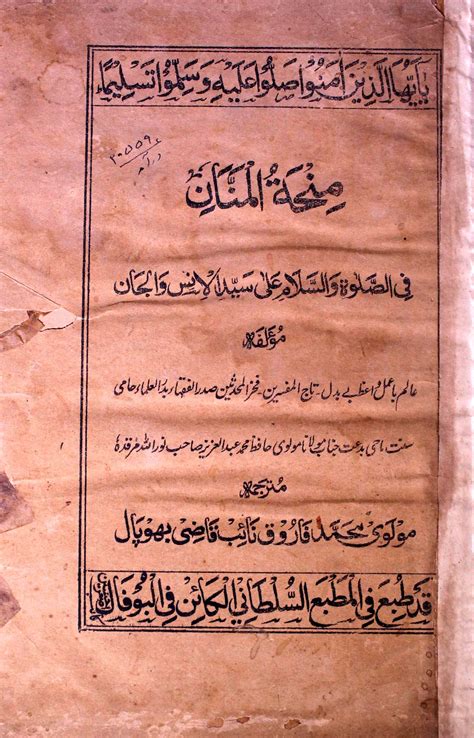 يٰايّها الّذين اٰمنوا صلّوا عليه وسلّموا تسليما
۳۰۵۵۹
منحة المنّان
فى الصّلوة والسّلام علىٰ سيّد الانس والجان
مؤلفہ
عالم باعمل واعظ بے بدل۔ تاج المفسرین۔ فخر المحدثین صدر الفقہا بدر العلماء حامی
سنت ماحی بدعت جناب مولانا مولوی حافظ محمد عبد العزیز صاحب نور اللہ مرقدہ
مترجمہ
مولوی محمد فاروق نائب قاضی بھوپال
قد طبع فى المطبع السّلطانى الكائن فى البوفال